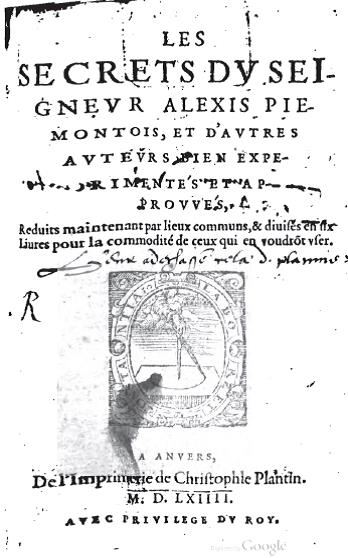 LES
SECRETS DV SEI-
GNEVR ALEXIS PIE-
MONTOIS, ET D'AVTRES
AVTEVRS BIEN EXPE-
RIMENTÉS ET AP-
PROVVES,
Reduits maintenant par lieux communs, & diuisés en six
Liures pour la commodité de ceux qui en voudrõt vser.
R
LABORE ET
CONSTANTIA
A ANVERS,
De l'Imprimerie de Christophle Plantin.
M. D. LXIIII.
AVEC PRIVILEGE DV ROY.
Google